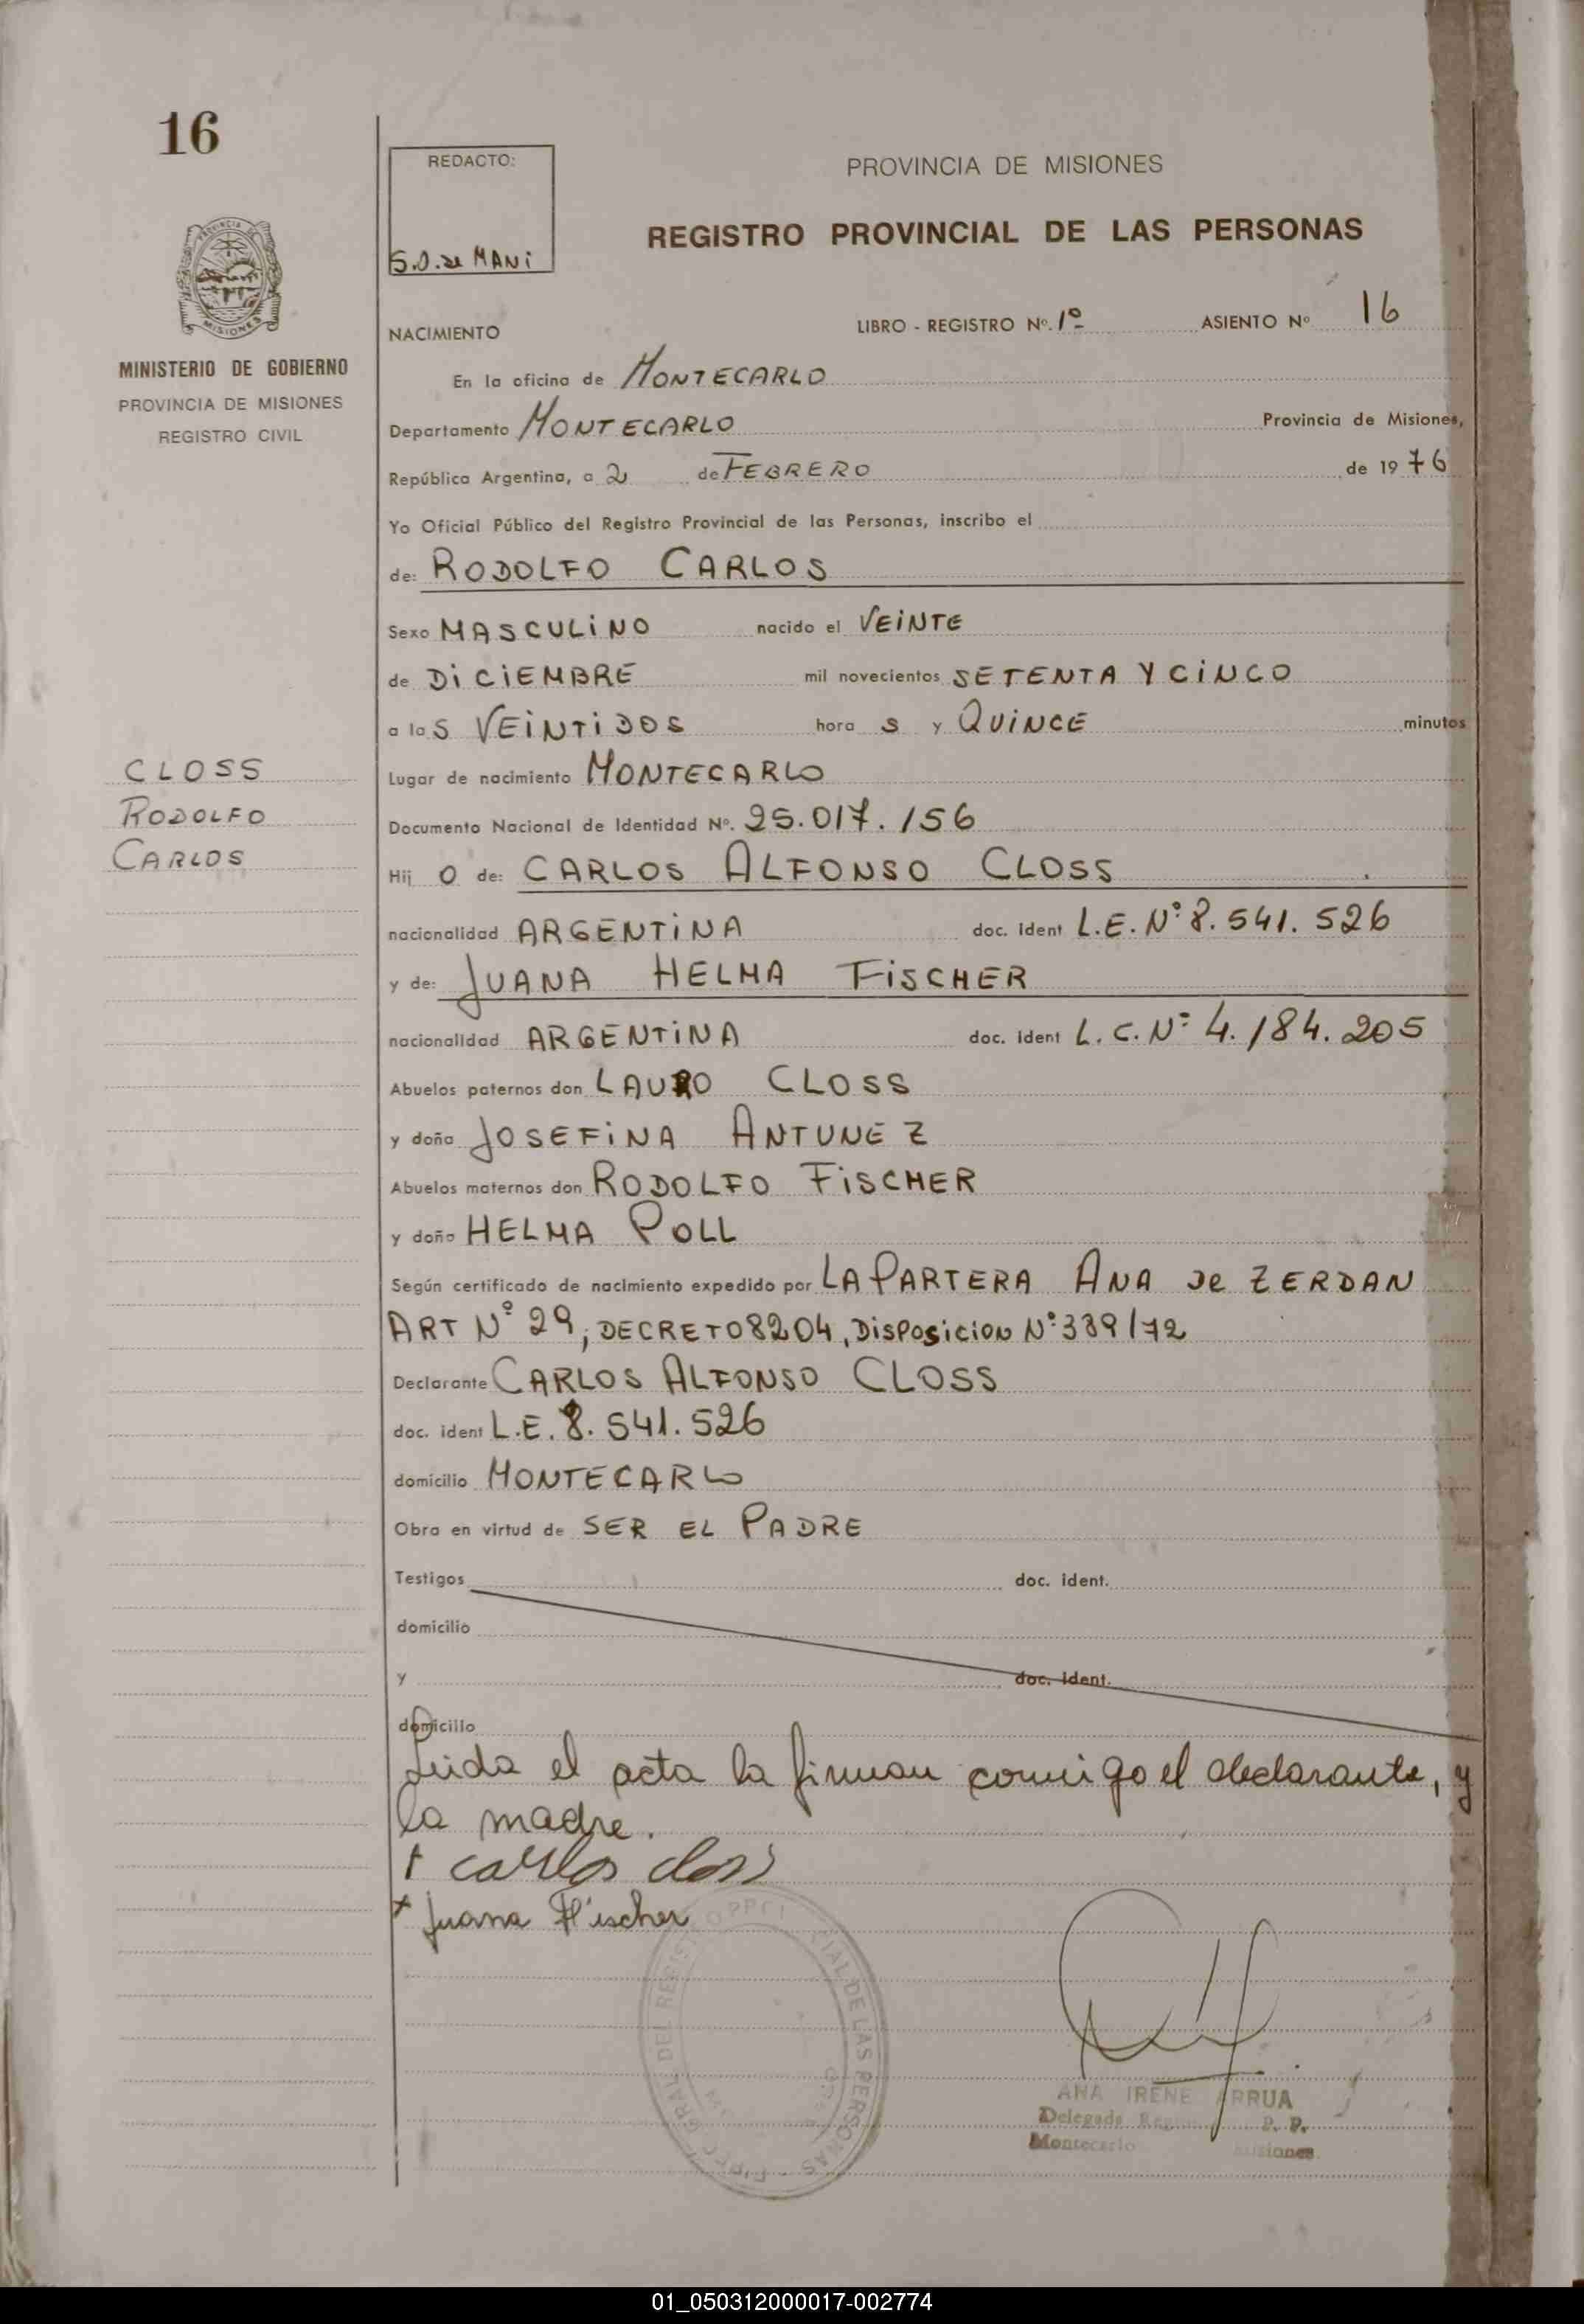 16
REDACTO:
S.D. de MANI
PROVINCIA DE MISIONES
REGISTRO PROVINCIAL DE LAS PERSONAS
PROVINCIA DE
MISIONES
MINISTERIO DE GOBIERNO
PROVINCIA DE MISIONES
REGISTRO CIVIL
NACIMIENTO LIBRO - REGISTRO Nº. 1º ASIENTO Nº 16
En la oficina de MONTECARLO
Departamento MONTECARLO Provincia de Misiones,
República Argentina, a 2 de FEBRERO de 1976
Yo Oficial Público del Registro Provincial de las Personas, inscribo el
de: RODOLFO CARLOS
Sexo MASCULINO nacido el VEINTE
de DICIEMBRE mil novecientos SETENTA Y CINCO
a las VEINTIDOS hora s y QUINCE minutos
CLOSS
RODOLFO
CARLOS
Lugar de nacimiento MONTECARLO
Documento Nacional de Identidad Nº. 25.017.156
Hij O de: CARLOS ALFONSO CLOSS
nacionalidad ARGENTINA doc. ident L.E. Nº 8.541.526
y de: JUANA HELMA FISCHER
nacionalidad ARGENTINA doc. ident L.C. Nº 4.184.205
Abuelos paternos don LAURO CLOSS
y doña JOSEFINA ANTUNEZ
Abuelos maternos don RODOLFO FISCHER
y doña HELMA POLL
Según certificado de nacimiento expedido por LA PARTERA ANA de ZERDAN
ART Nº 29, DECRETO 8204, DISPOSICION Nº 339/72
Declarante CARLOS ALFONSO CLOSS
doc. ident L.E. 8.541.526
domicilio MONTECARLO
Obra en virtud de SER EL PADRE
Testigos doc. ident.
domicilio
y doc. ident.
domicilio
Leida el acta la firman conmigo el declarante, y
la madre.
carlos closs
Juana Fischer
GRAL DEL REGISTRO
DE LAS PERSONAS
ANA IRENE ARRUA
Delegada P. P.
Montecarlo Misiones
01_050312000017-002774